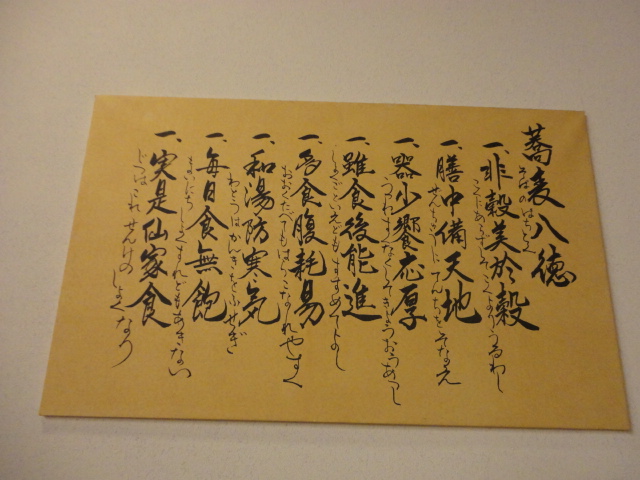 蕎麦八徳
そばのはちとく
一、非穀美於穀
こくにあらずしてこくよりうるわし
一、膳中備天地
ぜんちゅうに てんちをそなえ
一、器小饗応厚
うつわちいさくしてきょうおうあつし
一、雖食後能進
しょくごといえどもすすめてよし
一、多食腹耗易
おおくたべてもはらこなれやすく
一、和湯防寒気
わとうはかんきをふせぎ
一、毎日食無飽
まいにちしょくすれどもあきない
一、実是仙家食
じつはこれ せんけの しょくなり